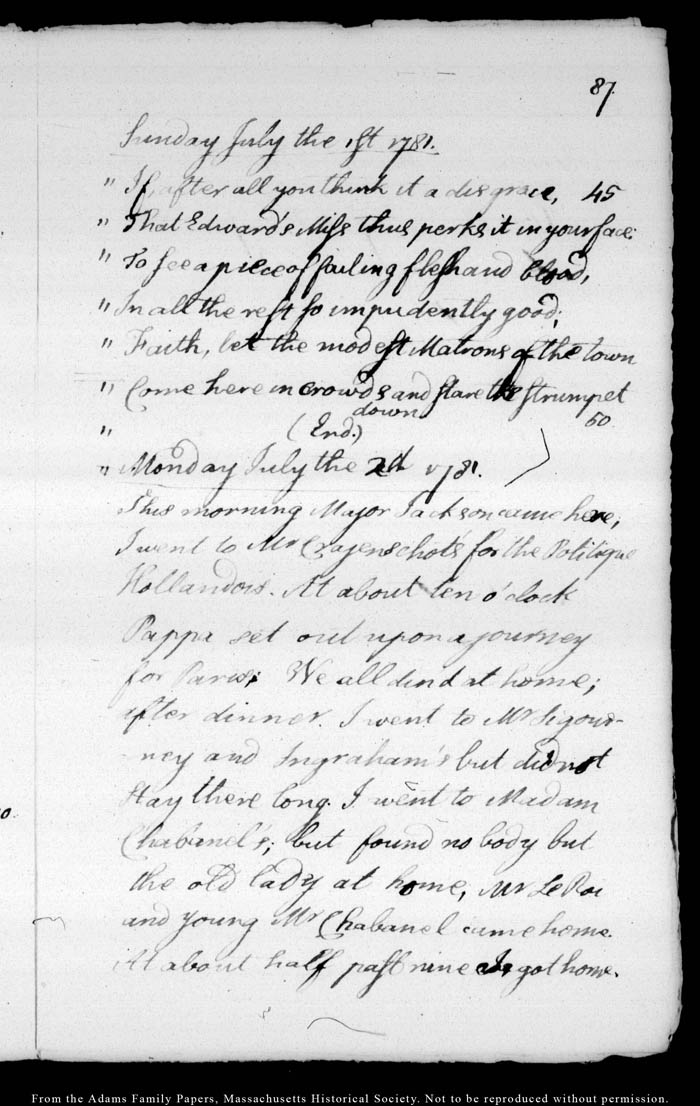 87.
Sunday July the 1st 1781.
" If, after all you think it a disgrace, 45
" That Edward's Miss thus perks it in your face:
" To see a piece of failing flesh and blood,
" In all the rest so impudently good;
" Faith, let the modest Matrons of the town
" Come here in crowds and stare the strumpet
down 50
" (End.)
" Monday July the 2d 1781.
This morning Major Jackson came here;
I went to Mr Crajenschot's for the Politique
Hollandois. At about ten o'clock
Pappa set out upon a journey
for Paris; We all din'd at home;
after dinner I went to Mr Sigour-
ney and Ingraham's but did not
stay there long. I went to Madam
Chabanel's; but found no body but
the old lady at home, Mr Le Roi
and young Mr Chabanel came home.
At about half past nine I got home.
From the Adams Family Papers, Massachusetts Historical Society. Not to be reproduced without permission.